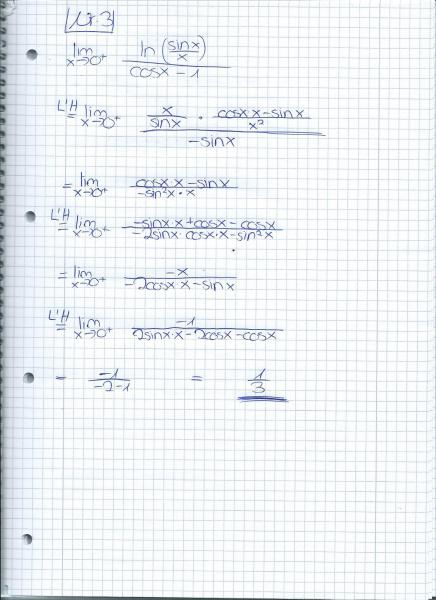 Nr. 3
lim x→0+ ln(sinx/x) / (cosx - 1)
L'H = lim x→0+ (x/sinx · (cosx x - sinx)/x²) / (-sinx)
= lim x→0+ (cosx·x - sinx) / (-sin²x·x)
L'H = lim x→0+ (-sinx·x + cosx - cosx) / (-2sinx·cosx·x - sin²x)
= lim x→0+ (-x) / (-2cosx·x - sinx)
L'H = lim x→0+ (-1) / (2sinx·x - 2cosx - cosx)
= -1/(-2-1) = 1/3